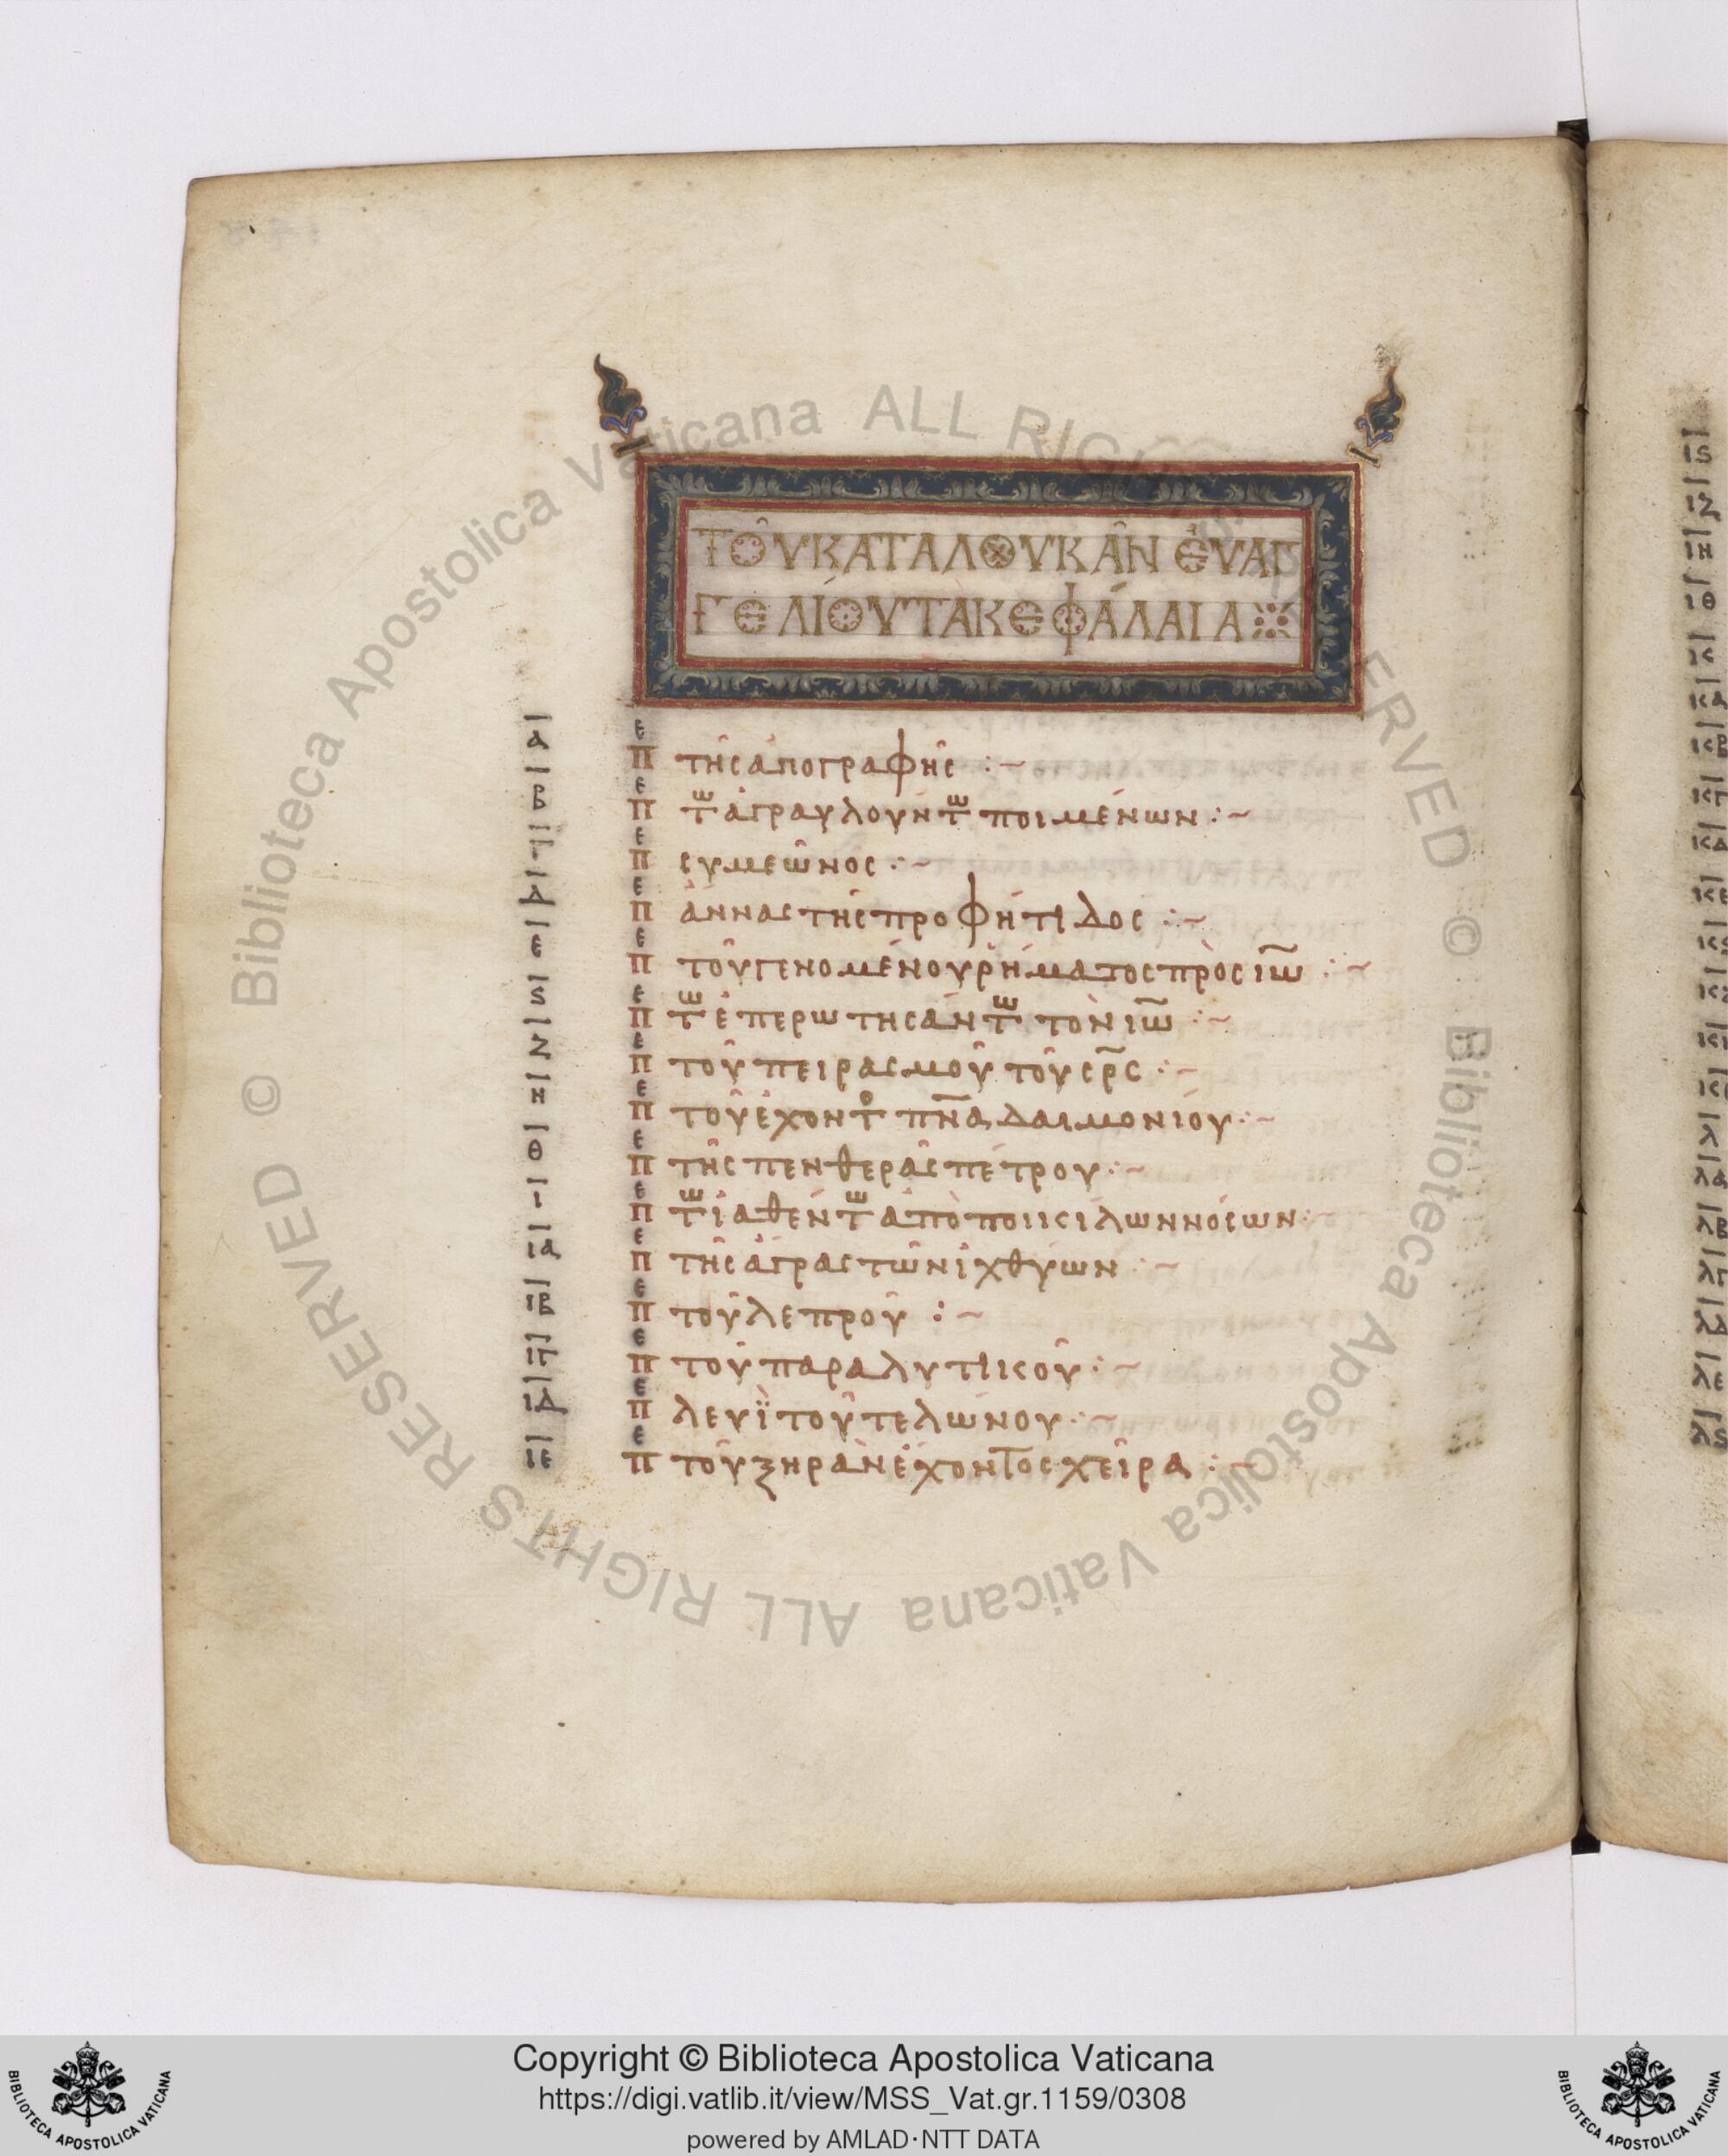 ΤΟῦ ΚΑΤΑ ΛΟΥΚᾶΝ ΕὐΑΓ
ΓΕΛΊΟΥ ΤΑ ΚΕΦΆΛΑΙΑ
α Πε τῆς ἀπογραφῆς :~
β Πε τῶ ἀγραυλούντω ποιμένων :~
γ Πε συμεῶνος :~
δ Πε ἄννας τῆς προφήτιδος :~
ε Πε τοῦ γενομένου ῥήματος πρὸς ἰω :~
ς Πε τῶ ἐπερωτησάντω τὸν ἰω :~
ζ Πε τοῦ πειρασμοῦ τοῦ σρς :~
η Πε τοῦ ἔχοντο πνα δαιμονίου :~
θ Πε τῆς πενθερᾶς πέτρου :~
ι Πε τῶ ἰαθέντω ἀπὸ ποικίλων νόσων :~
ια Πε τῆς ἄγρας τῶν ἰχθύων :~
ιβ Πε τοῦ λεπροῦ :~
ιγ Πε τοῦ παραλυτικοῦ :~
ιδ Πε λευῒ τοῦ τελώνου :~
ιε Πε τοῦ ξηρὰν ἔχοντος χεῖρα :~
ις
ιζ
ιη
ιθ
κ
κα
κβ
κγ
κδ
κε
λ
λα
λβ
λγ
λδ
λε
λς
© Biblioteca Apostolica Vaticana ALL RIGHTS RESERVED © Biblioteca Apostolica Vaticana ALL RIGHTS RESERVED
Copyright © Biblioteca Apostolica Vaticana
https://digi.vatlib.it/view/MSS_Vat.gr.1159/0308
powered by AMLAD·NTT DATA
BIBLIOTECA APOSTOLICA VATICANA
BIBLIOTECA APOSTOLICA VATICANA